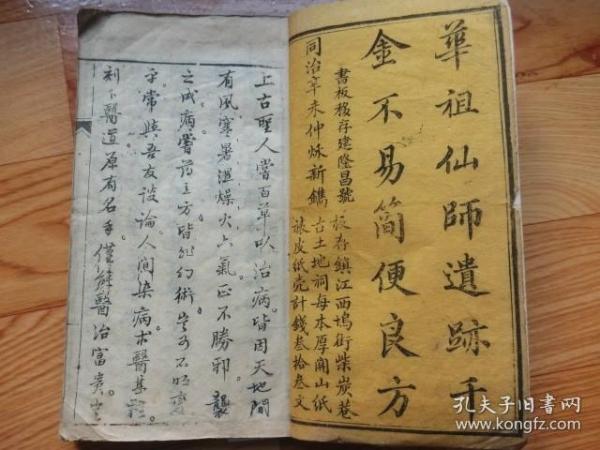 華祖仙師遺跡千
金不易簡便良方
書板移存建隆昌號
同治辛未仲秋新鐫
板存鎮江西塢街柴炭巷
古土地祠每本厚關山紙
裱皮紙壳計錢叁拾叁文
上古聖人嘗百草以治病皆因天地間
有風寒暑濕燥火六氣正不勝邪襲
之成病嘗药立方皆非幻術豈可不
常與吾友談論人間染病求醫甚
利卜醫道原有名手僅能醫治富貴
孔夫子旧书网
www.kongfz.com